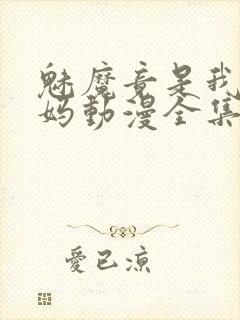 魅魔竟是我
妈動漫全集
愛已涼